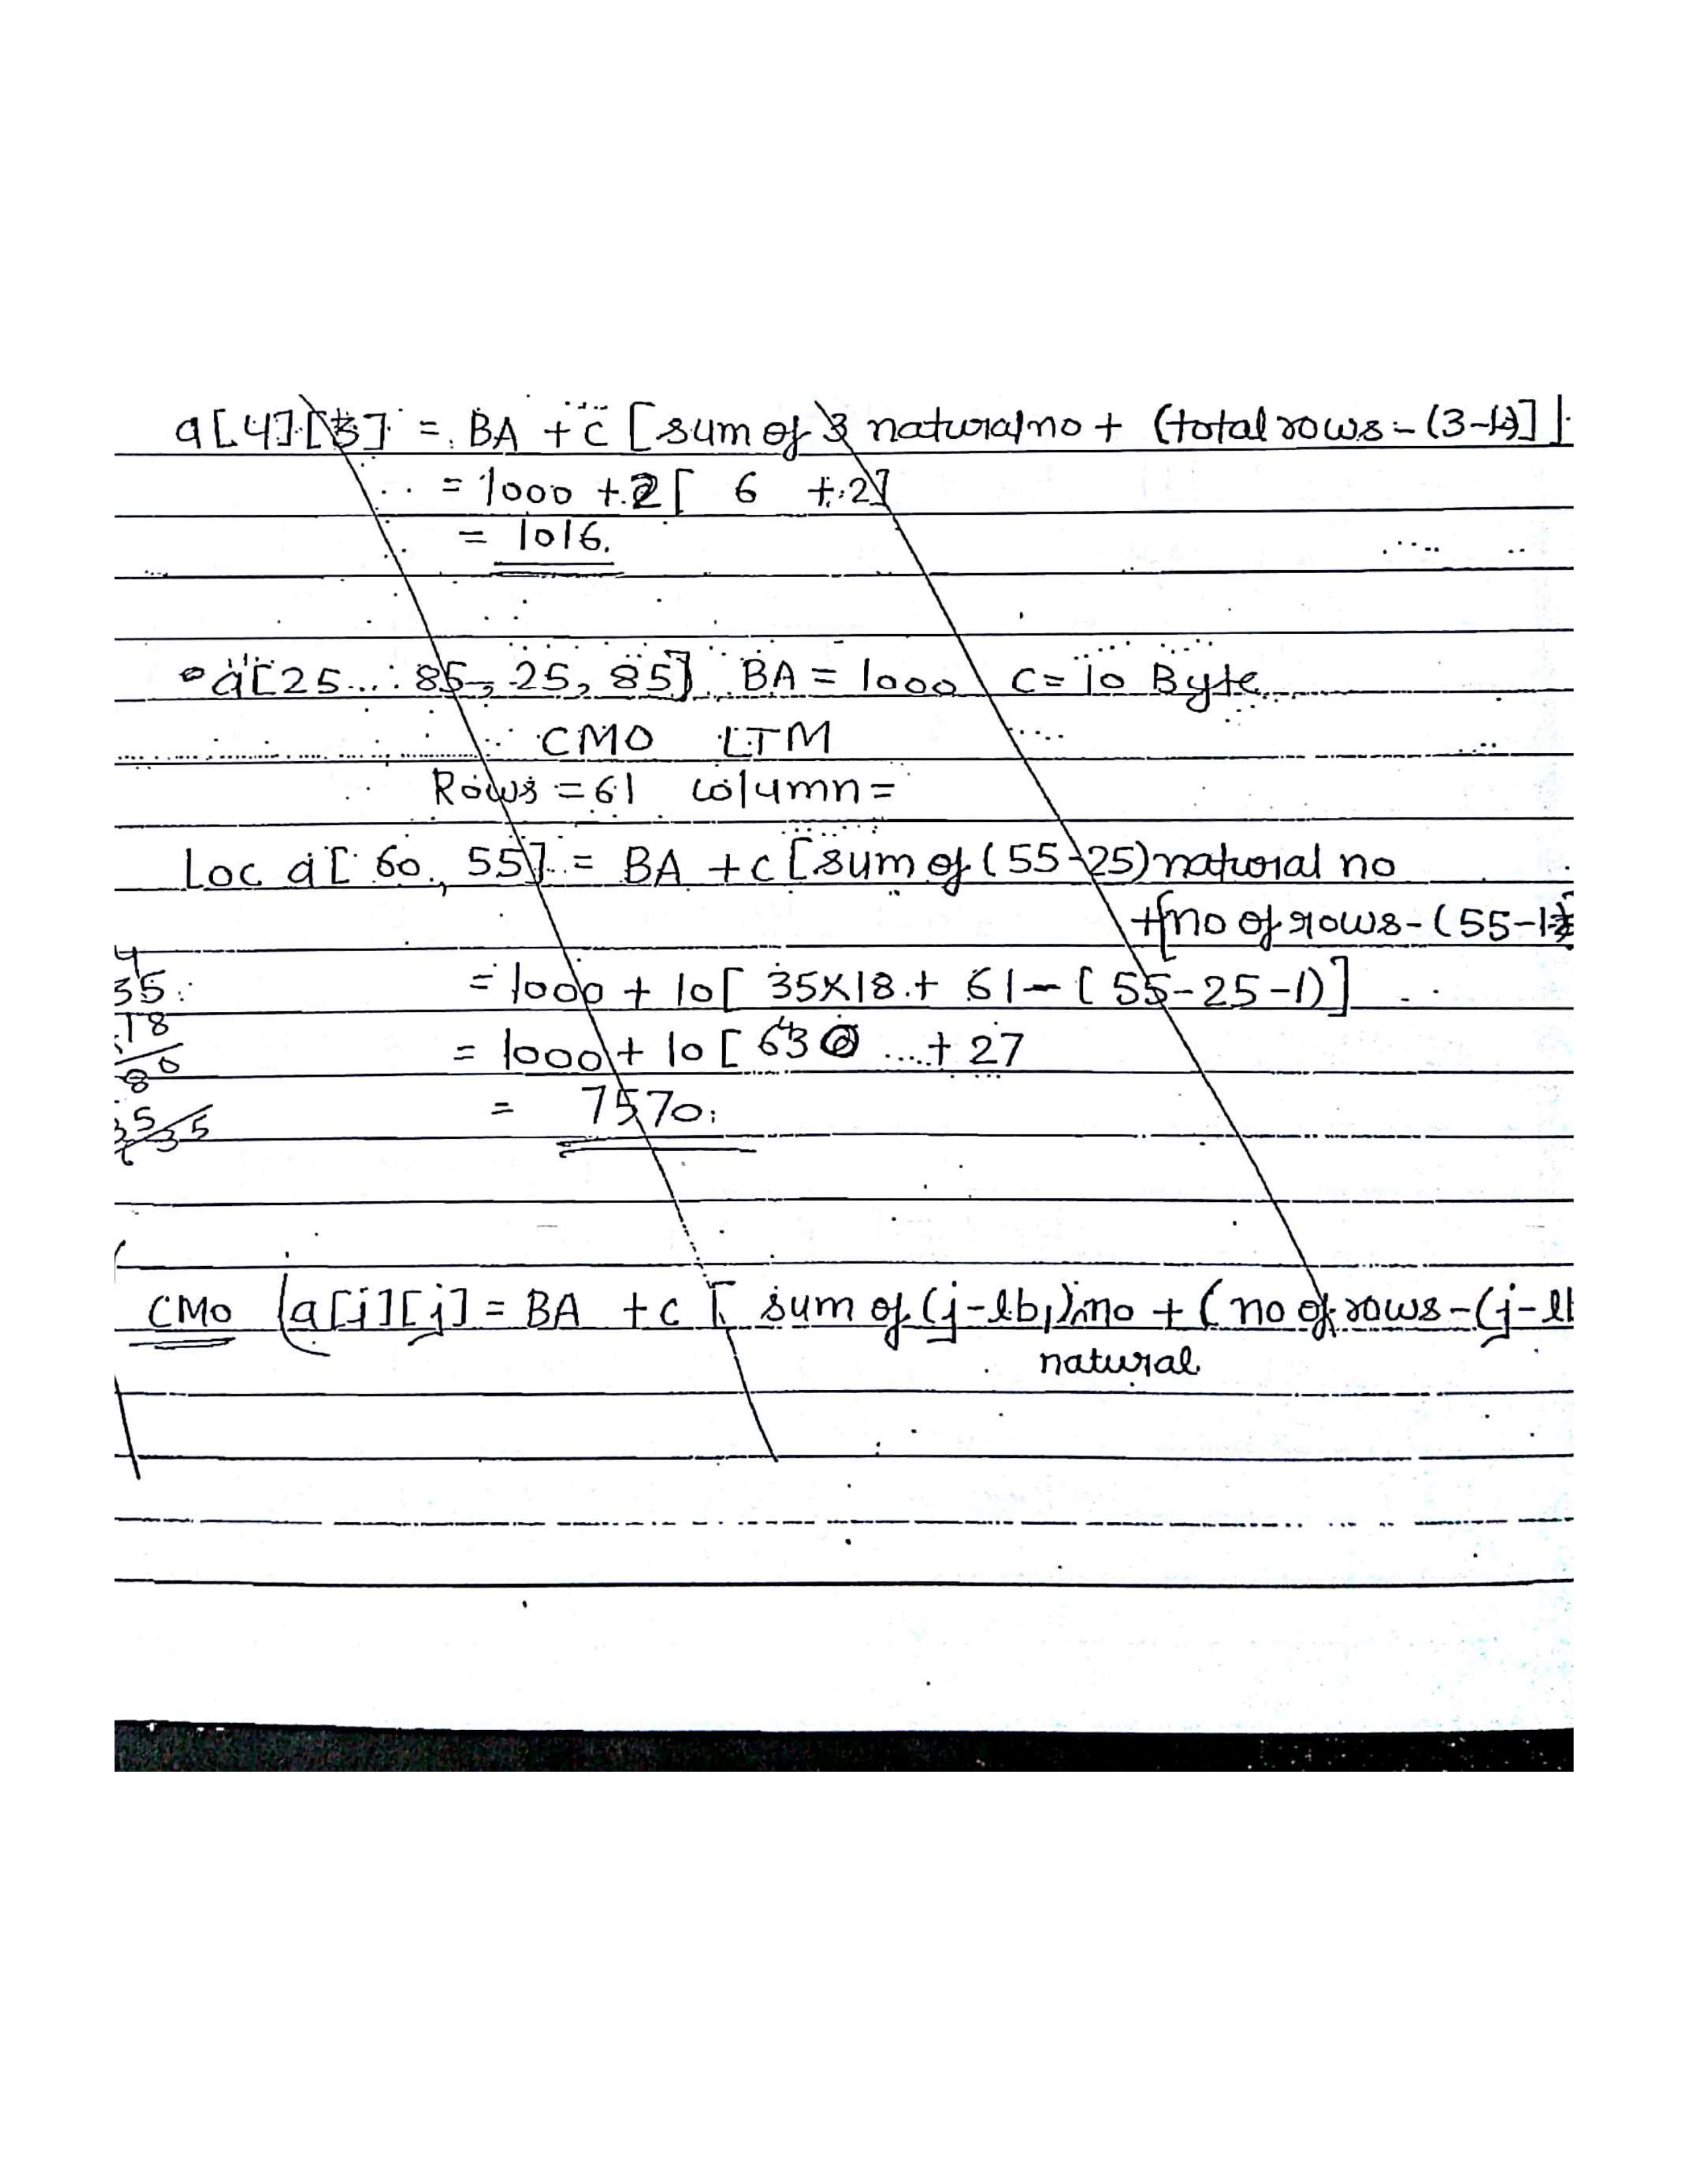 a[4][3] = BA + c [sum of 3 natural no + (total rows - (3-1)]
= 1000 + 2[ 6 + 2]
= 1016.
a[25...85, 25, 85] BA = 1000 C = 10 Byte
CMO LTM
Rows = 61 column =
Loc a[ 60, 55] = BA + c [sum of (55-25) natural no
+[no of rows - (55-1
= 1000 + 10[ 35x18 + 61 - [ 55-25-1)]
= 1000 + 10 [ 630 + 27
= 7570
4
35
18
80
35
CMO (a[i][j] = BA + c [ sum of (j-lb1) no + ( no of rows - (j-lb
natural